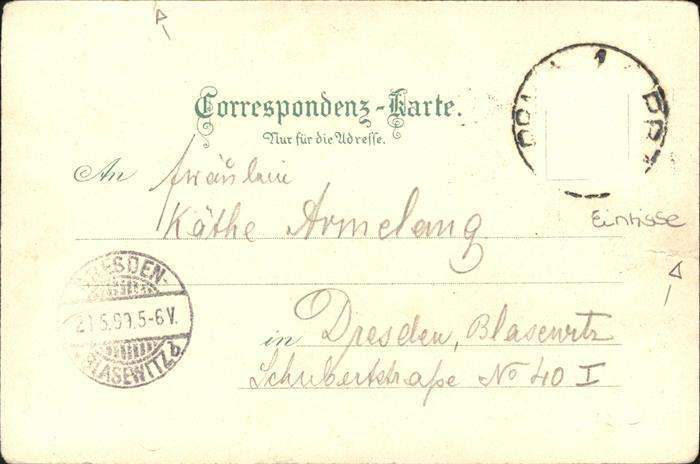 Correspondenz-Karte.
Nur für die Adresse.
An Fräulein
Käthe Armelang
Einrisse
in Dresden, Blasewitz
Schubertstraße No 40 I
DRESDEN-
21.5.99.5-6V.
BLASEWITZ